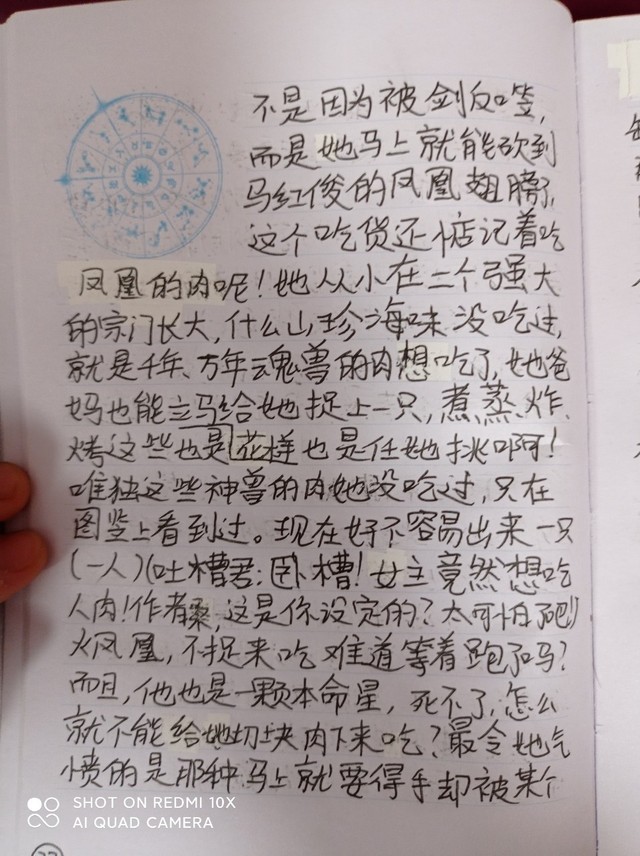 不是因为被剑反噬,
而是她马上就能砍到
马红俊的凤凰翅膀了,
这个吃货还惦记着吃
凤凰的肉呢!她从小在二个强大
的宗门长大,什么山珍海味没吃过,
就是千年、万年魂兽的肉想吃了,她爸
妈也能立马给她捉上一只,煮、蒸、炸、
烤这些也是花样也是任她挑啊!
唯独这些神兽的肉她没吃过,只在
图鉴上看到过。现在好不容易出来一只
(一人)(吐槽君:卧槽!女主竟然想吃
人肉!作者,这是你设定的?太可怕了吧!)
火凤凰,不捉来吃难道等着跑了吗?
而且,他也是一颗本命星,死不了,怎么
就不能给她切块肉下来吃?最令她气
愤的是那种马上就要得手却被某个
SHOT ON REDMI 10X
AI QUAD CAMERA